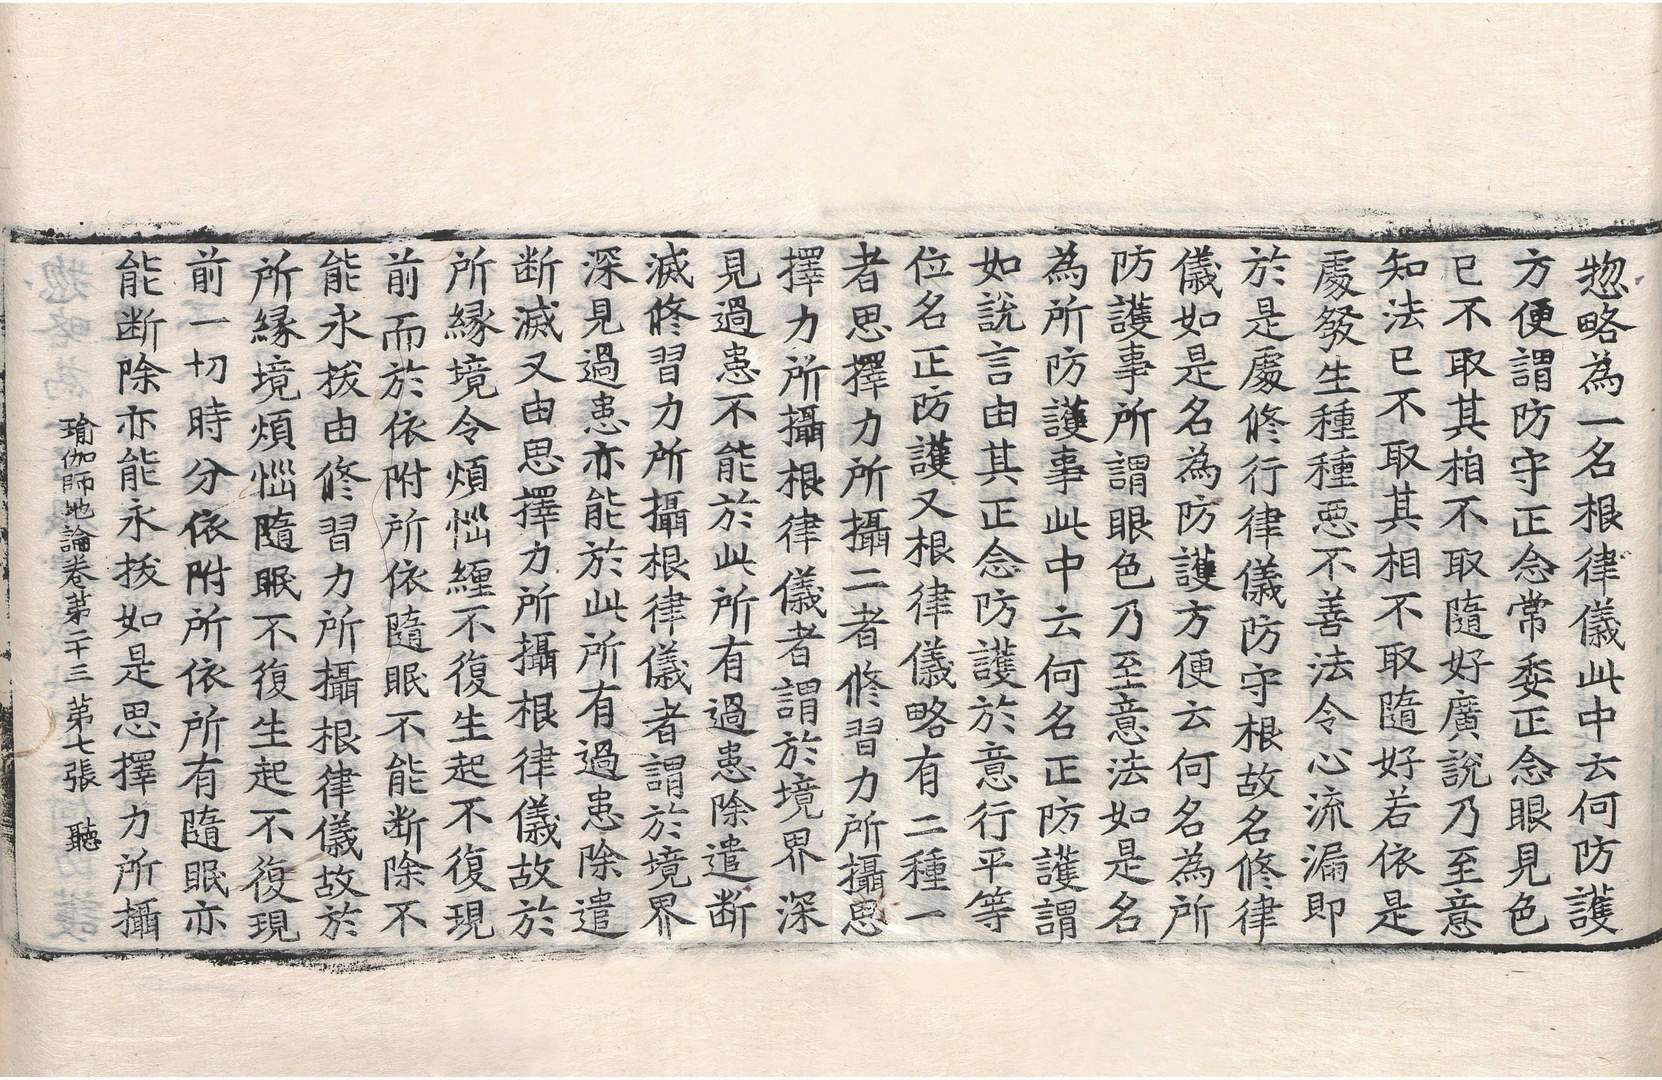 惣略為一名根律儀此中云何防護
方便謂防守正念常委正念眼見色
已不取其相不取隨好廣說乃至意
知法已不取其相不取隨好若依是
處發生種種惡不善法令心流漏即
於是處修行律儀防守根故名修律
儀如是名為防護方便云何名為所
防護事所謂眼色乃至意法如是名
為所防護事此中云何名正防護謂
如說言由其正念防護於意行平等
位名正防護又根律儀略有二種一
者思擇力所攝二者修習力所攝思
擇力所攝根律儀者謂於境界深
見過患不能於此所有過患除遣断
滅修習力所攝根律儀者謂於境界
深見過患亦能於此所有過患除遣
断滅又由思擇力所攝根律儀故於
所緣境令煩惱纏不復生起不復現
前而於依附所依隨眠不能断除不
能永拔由修習力所攝根律儀故於
所緣境煩惱隨眠不復生起不復現
前一切時分依附所依所有隨眠亦
能断除亦能永拔如是思擇力所攝
瑜伽師地論卷苐二十三 苐七張 聽